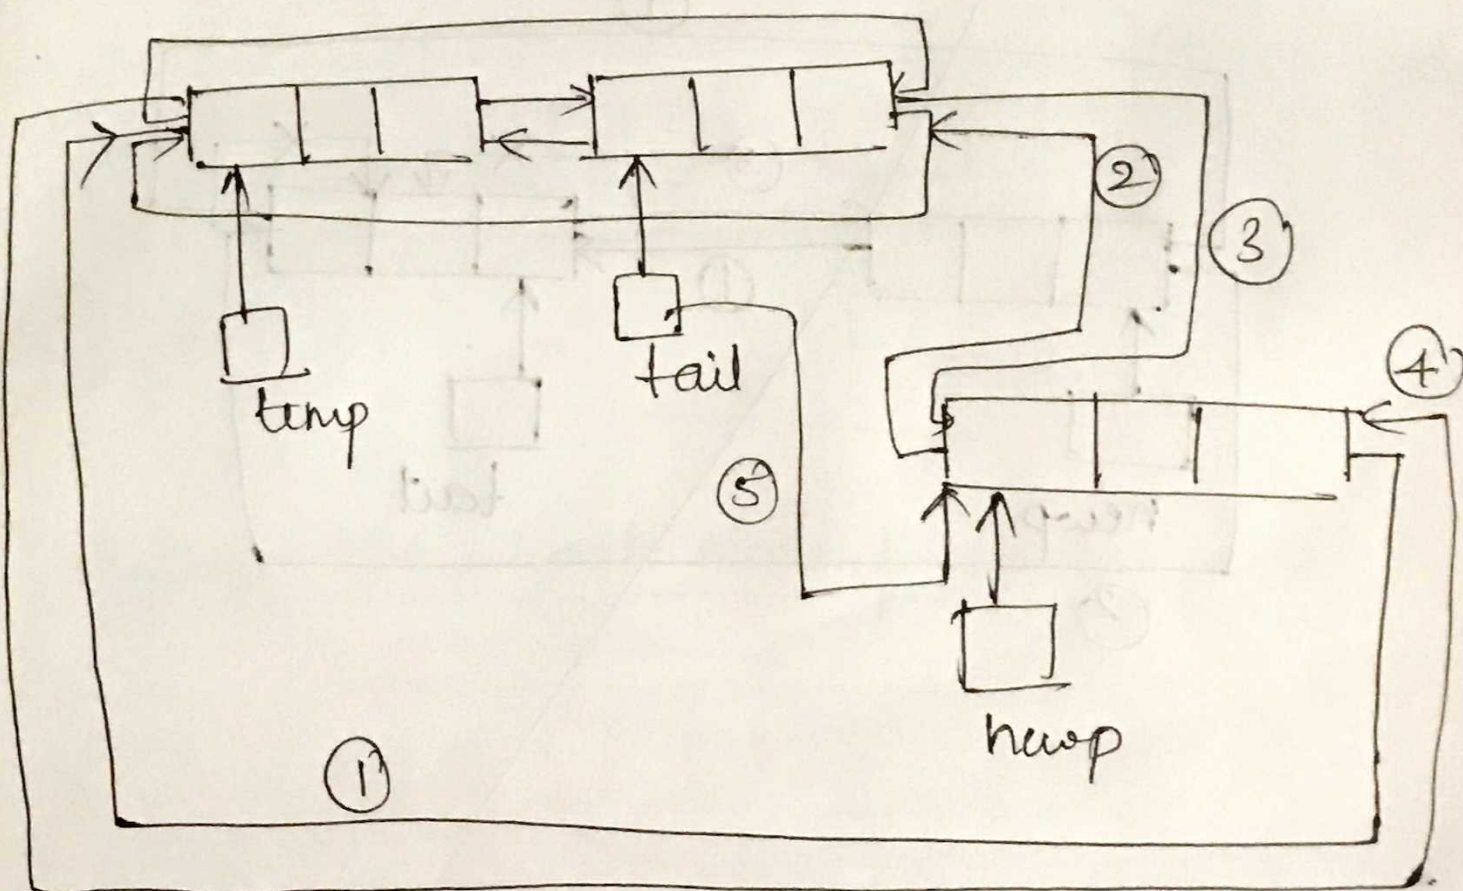 2
3
temp
tail
4
5
newp
1